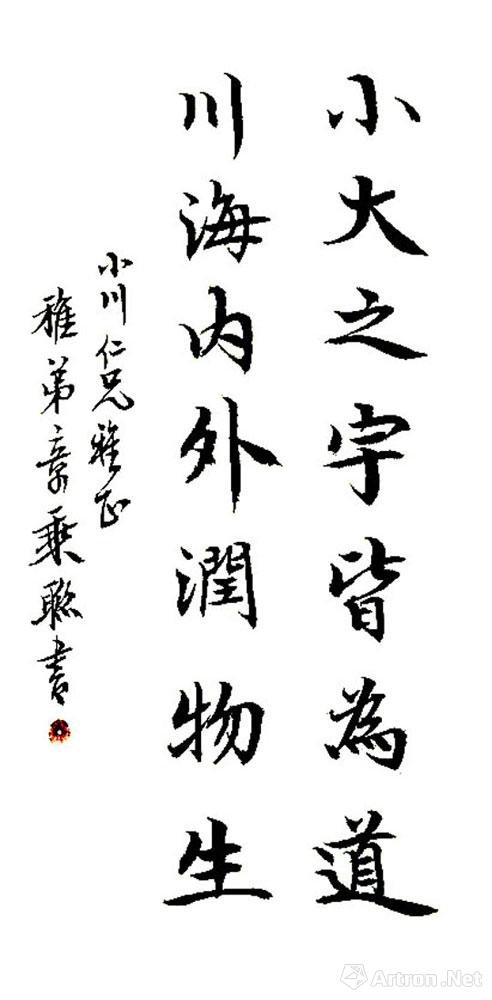 小大之字皆為道
川海内外潤物生
小川仁兄雅正
雅弟章乘聯書
Artron.Net